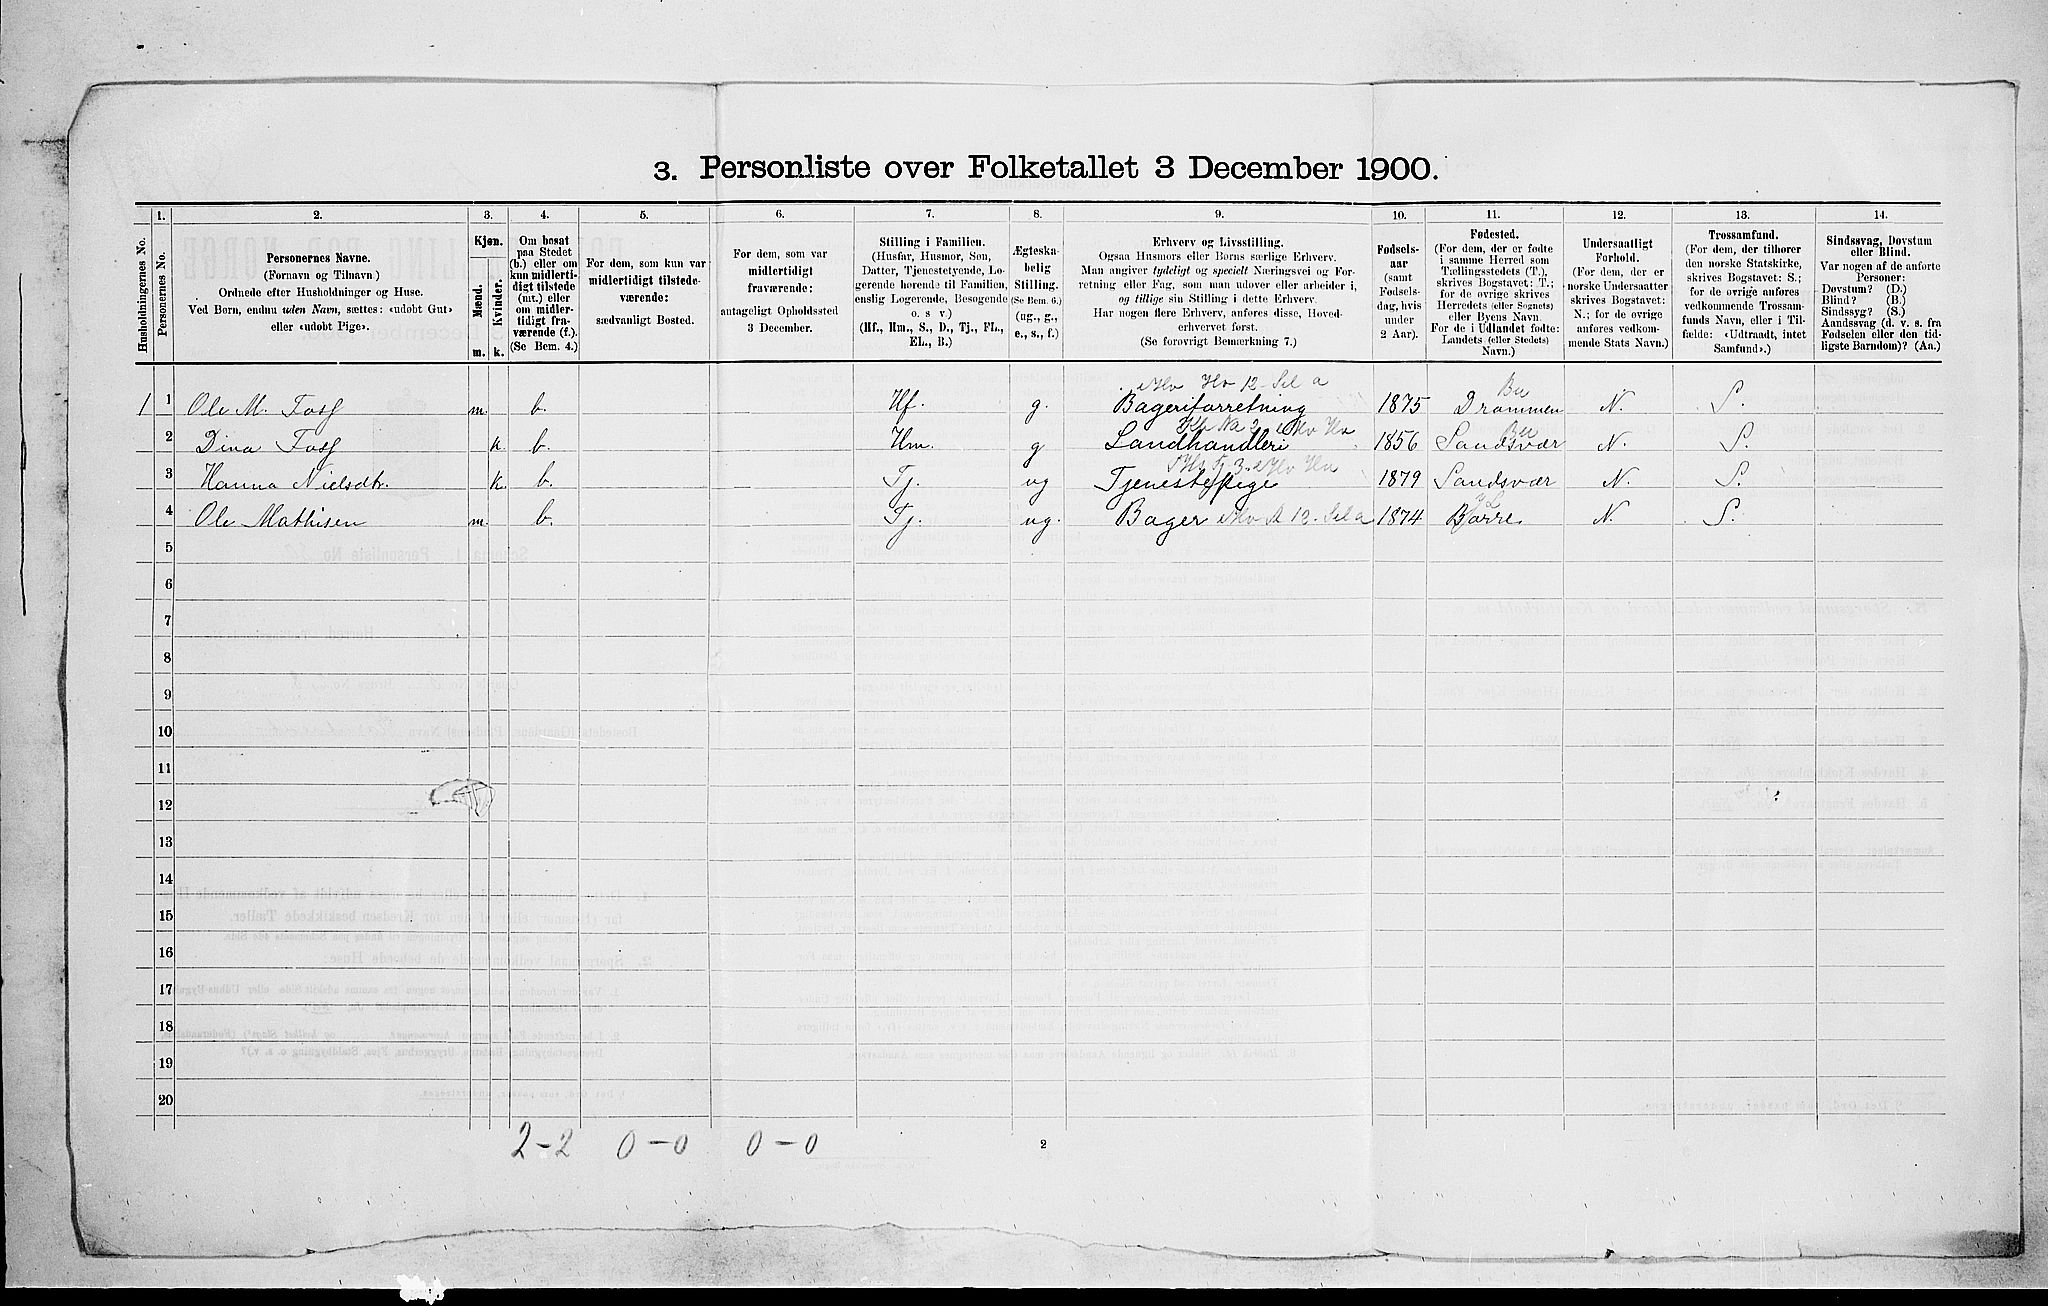 3. Personliste over Folketallet 3 December 1900.
1. 2. 3. 4. 5. 6. 7. 8. 9. 10. 11. 12. 13. 14.
Husholdningernes No.
Personernes No.
Personernes Navne.
(Fornavn og Tilnavn)
Ordnede efter Husholdninger og Huse.
Ved Børn, endnu uden Navn, sættes: «udøbt Gut»
eller «udøbt Pige».
Kjøn.
Mænd.
Kvinder.
m. k.
Om bosat
paa Stedet
(b.) eller om
kun midlerti-
digt tilstede
(mt.) eller
om midler-
tidigt fra-
værende (f.).
(Se Bem. 4.)
For dem, som kun var
midlertidigt tilstede-
værende:
sædvanligt Bosted.
For dem, som var
midlertidigt
fraværende:
antageligt Opholdssted
3 December.
Stilling i Familien.
(Husfar, Husmor, Søn,
Datter, Tjenestetyende, Lo-
gerende hørende til Familien,
enslig Logerende, Besøgende
o. s v)
(Hf., Hm., S., D., Tj., FL.,
EL., B.)
Ægteska-
belig
Stilling.
(Se Bem. 6.)
(ug., g.,
e., s., f.)
Erhverv og Livsstilling.
Ogsaa Husmors eller Børns særlige Erhverv.
Man angiver tydeligt og specielt Næringsvei og For-
retning eller Fag, som man udøver eller arbeider i,
og tillige sin Stilling i dette Erhverv.
Har nogen flere Erhverv, anføres disse, Hoved-
erhvervet først.
(Se forøvrigt Bemærkning 7.)
Fødsels-
aar
(samt
Fødsels-
dag, hvis
under
2 Aar).
Fødested.
(For dem, der er fødte
i samme Herred som
Tællingsstedets (T.),
skrives Bogstavet: T.;
for de øvrige skrives
Herredets (eller Sognets)
eller Byens Navn.
For de i Udlandet fødte:
Landets (eller Stedets)
Navn.)
Undersaatligt
Forhold.
(For dem, der er
norske Undersaatter
skrives Bogstavet:
N.; for de øvrige
anføres vedkom-
mende Stats Navn.)
Trossamfund.
(For dem, der tilhører
den norske Statskirke,
skrives Bogstavet: S.;
for de øvrige anføres
vedkommende Trossam-
funds Navn, eller i Til-
fælde: «Udtraadt, intet
Samfund».)
Sindssvag, Døvstum
eller Blind.
Var nogen af de anførte
Personer:
Døvstum? (D.)
Blind? (B.)
Sindssyg? (S.)
Aandssvag (d. v. s. fra
Fødselen eller den tid-
ligste Barndom)? (Aa.)
1 1 Ole M. Foss m. b. Hf. g. Bageriforretning 1875 Drammen N. S.
2 Dina Foss k. b. Hm. g Landhandleri 1856 Sandsvær N. S.
3 Hanna Nielsdtr. k. b. Tj. ug Tjenestepige 1879 Sandsvær N. S.
4 Ole Mathisen m. b. Tj. ug. Bager 1874 Borre N. S.
5
6
7
8
9
10
11
12
13
14
15
16
17
18
19
20
2-2 0-0 0-0
2